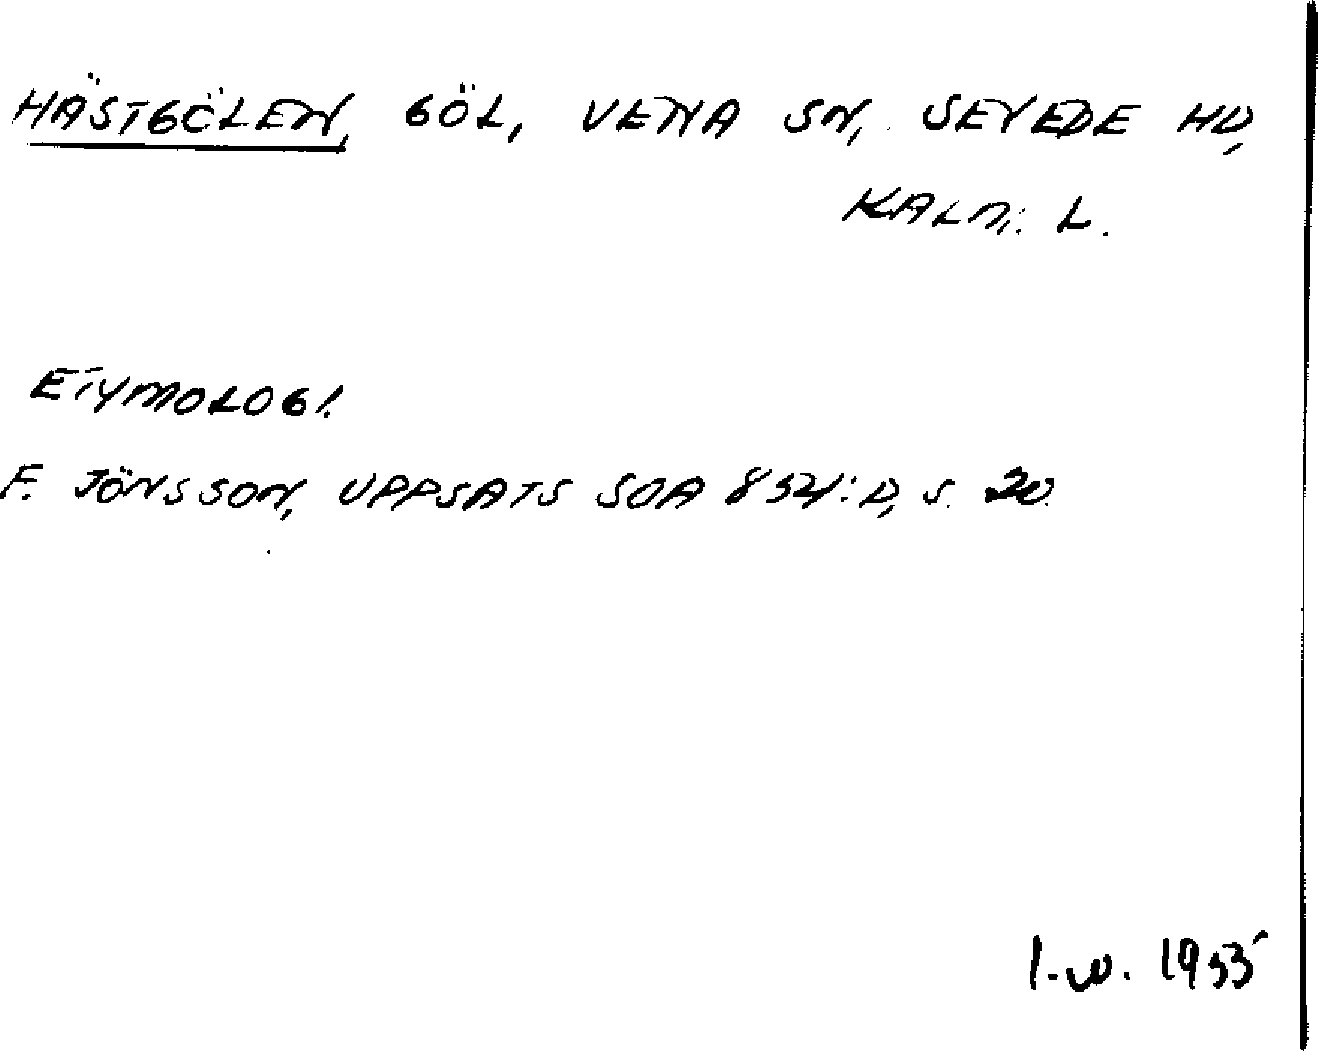 HÄSTGÖLEN, GÖL, VENA SN, SEVEDE HD,
KALM. L.
ETYMOLOGI.
F. JÖNSSON, UPPSATS SOA 8521:D, S. 20.
I.W. 1955